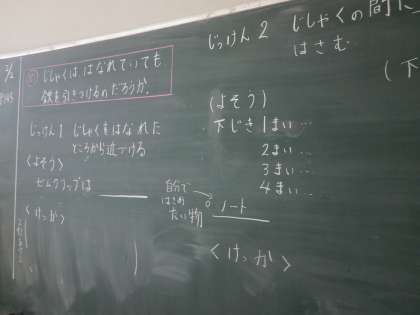 じしゃくは はなれていても
鉄を引きつけるのだろうか。
じっけん1 じしゃくをはなれた
ところから近づける
〈よそう〉
ゼムクリップは
〈けっか〉
じっけん2 じしゃくの間に
はさむ
(下
(よそう)
下じき1まい…
2まい…
3まい…
4まい…
自分で
はじめ
たい物
ノート
〈けっか〉